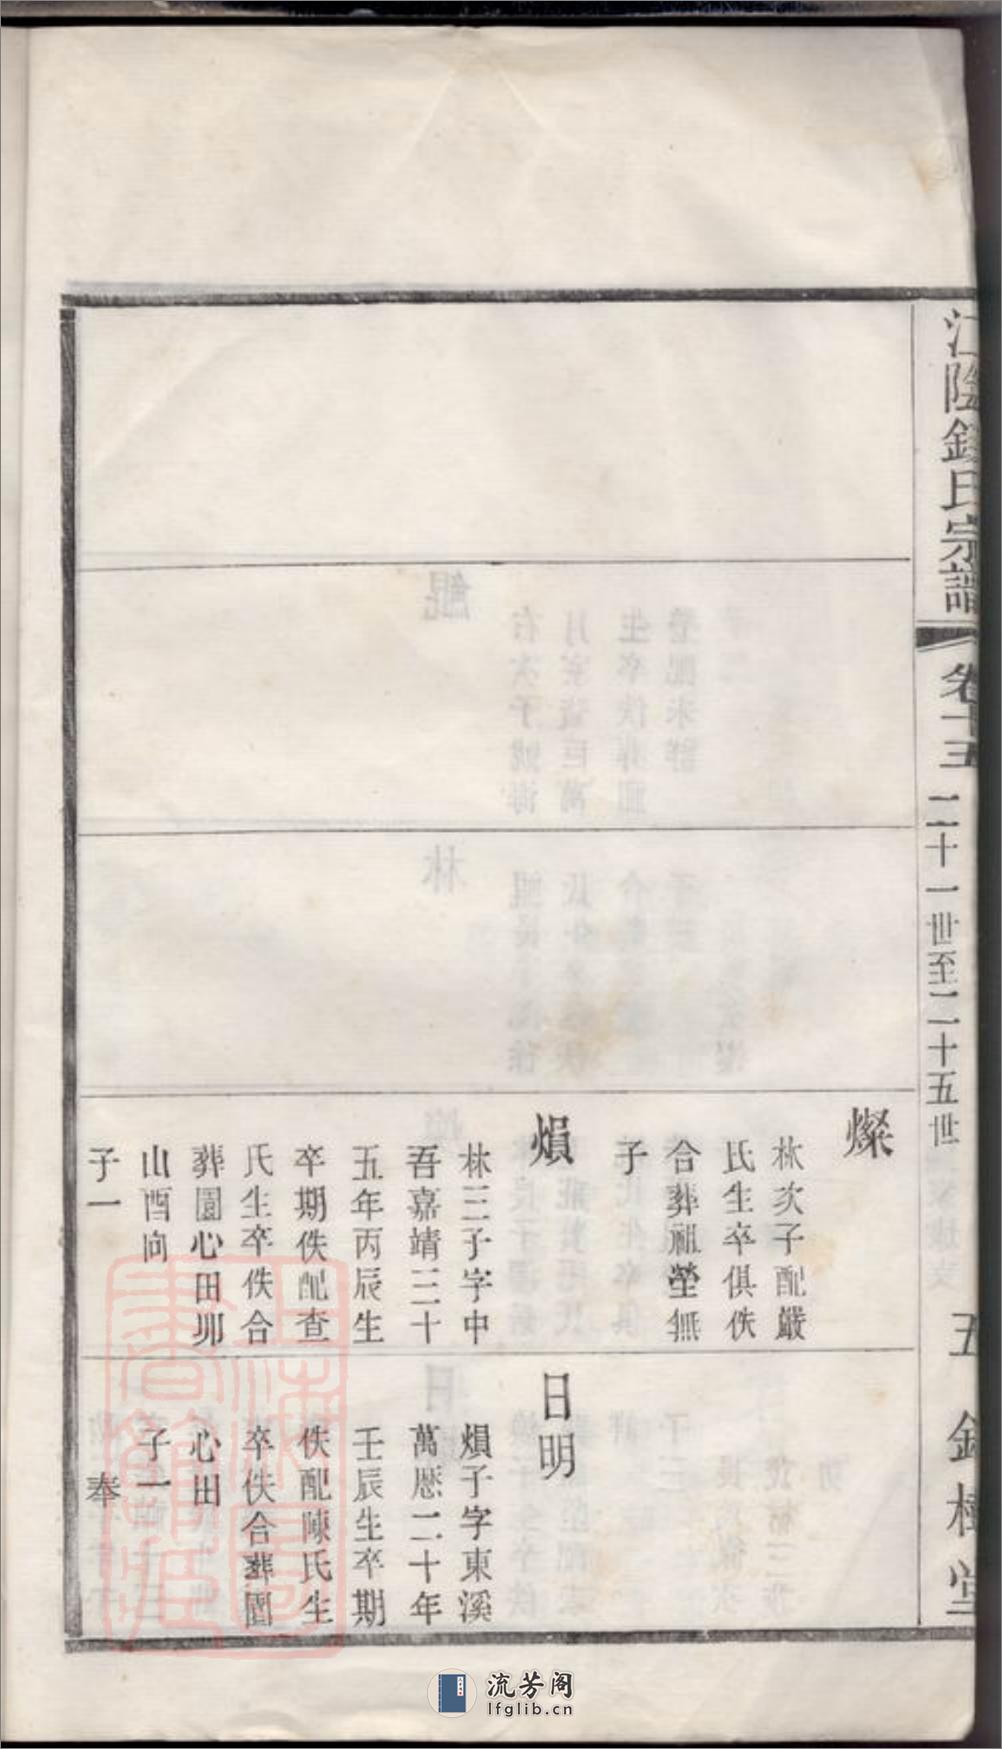 江陰錢氏宗譜
卷十三
二十一世至二十五世
五
錦樹堂
燦
林次子配嚴
氏生卒俱佚
合葬祖塋無
子
熉
林三子字中
吾嘉靖三十
五年丙辰生
卒期佚配查
氏生卒佚合
葬園心田卯
山酉向
子一
日明
熉子字東溪
萬厯二十年
壬辰生卒期
佚配陳氏生
卒佚合葬園
心田
子一
奉
流芳阁
lfglib.cn